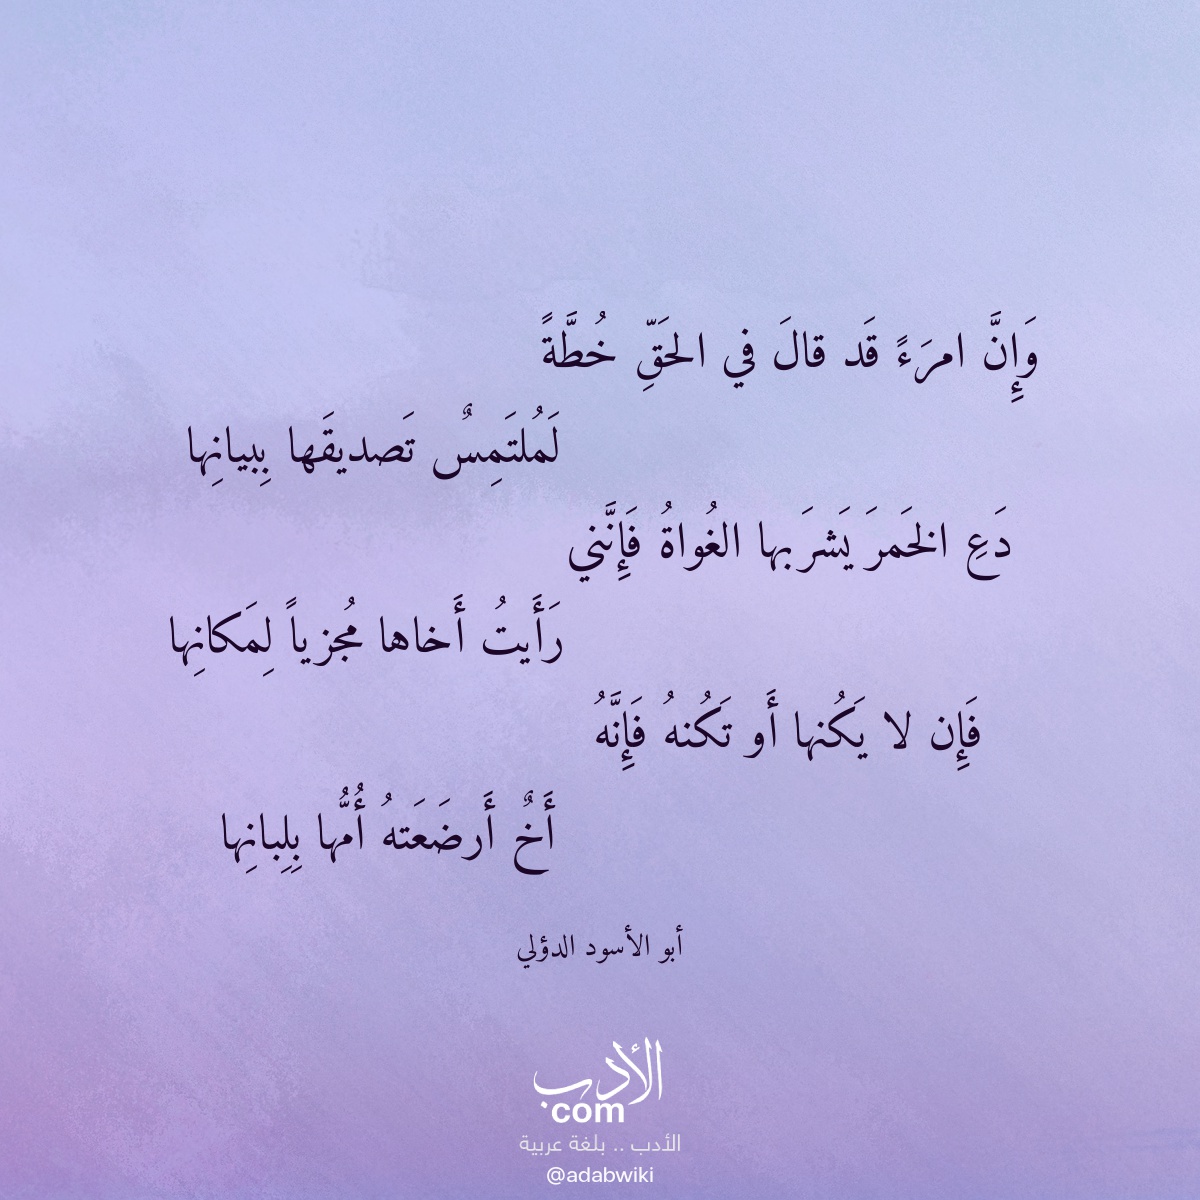 وَإِنَّ امرَءً قَد قالَ في الحَقِّ خُطَّةً
لَمُلتَمِسٌ تَصديقَها بِبيانِها
دَعِ الخَمرَ يَشرَبها الغُواةُ فَإِنَّني
رَأَيتُ أَخاها مُجزياً لِمَكانِها
فَإِن لا يَكُنها أَو تَكُنهُ فَإِنَّهُ
أَخٌ أَرضَعَتهُ أُمُّها بِلِبانِها
أبو الأسود الدؤلي
الأدب
com
الأدب .. بلغة عربية
@adabwiki